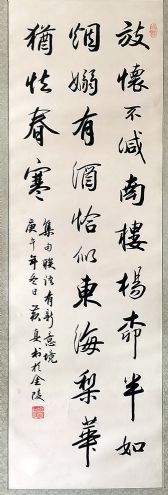 放懷不减南樓楊柳半如
烟嫋有酒恰似東海梨華
猶怯春寒
集句聯語有新意境
庚午年冬日 書於金陵